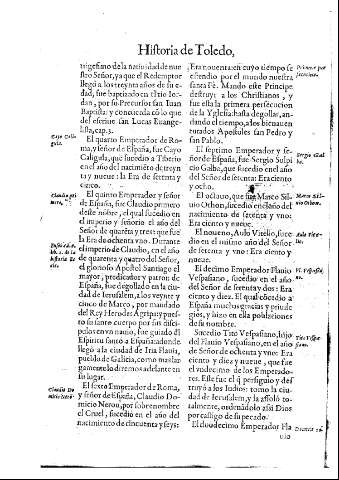 Historia de Toledo,
trigesimo de la natiuidad de nuestro
Señor, ya que el Redemptor
llegó a los treynta años de su edad,
fue baptizado en el rio Iordan,
por su Precursor san Iuan
Baptista: y concuerda cõ lo que
del escriue san Lucas Euangelista,
cap. 3.
El quarto Emperador de Roma,
y señor de España, fue Cayo
Caligula, que sucedio a Tiberio
en el año del nacimiẽto de treynta
y nueue: la Era de setenta y
cinco.
El quinto Emperador y señor
de España, fue Claudio primero
deste nõbre, el qual sucedio en
el imperio y señorio el año del
Señor de quarẽta y tres: que fue
la Era de ochenta y vno. Durante
el imperio de Claudio, en el año
de quarenta y quatro del Señor,
el glorioso Apostol Santiago el
mayor, predicador y patron de
España, fue degollado en la ciudad
de Ierusalem, a los veynte y
cinco de Março, por mandado
del Rey Herodes Agripa: y puesto
su santo cuerpo por sus discipulos
en vn nauio, fue guiado el
Espiritu santo a España: adonde
llegó a la ciudad de Iria Flauia,
pueblo de Galicia, como mas largamente
lo diremos adelante en
su lugar.
El sexto Emperador de Roma,
y señor de España, Claudio Domicio
Neron, por sobrenombre
el Cruel, sucedio en el año del
nacimiento de cincuenta y seys:
Cayo Caligula.
Claudio primero,
Claudio Domicio Nerõ.
Era nouenta: en cuyo tiempo se
estendio por el mundo nuestra
santa Fè. Mando este Principe
destruyr a los Christianos, y
fue esta la primera persecucion
de la Yglesia: hasta degollar, antes
de otros, a los bienauenturados
Apostoles san Pedro y
san Pablo.
El septimo Emperador y señor
de España, fue Sergio Sulpicio
Galba, que sucedio en el año
del Señor de setenta: Era ciento
y ocho.
El octauo, que fue Marco Siluio
Othon, sucedio en el año del
nacimiento de setenta y vno:
Era ciento y nueue.
El noueno, Aulo Vitelio, sucedio
en el mismo año del Señor
de setenta y vno: Era ciento y
nueue.
El decimo Emperador Flauio
Vespasiano, sucedio en el año
del Señor de setenta y dos: Era
ciento y diez. El qual cõcedio a
España muchas gracias y priuilegios,
y hizo en ella poblaciones
de su nombre.
Sucedio Tito Vespasiano, hijo
del Flauio Vespasiano, en el año
del Señor de ochenta y vno: Era
ciento y diez y nueue, que fue
el vndecimo de los Emperadores.
Este fue el q̃ persiguio y destruyó
a los Indios: tomo la ciudad
de Ierusalem, y la assoló totalmente,
ordenãdolo assi Dios
por castigo de su pecado.
El duodecimo Emperador Flauio
Primera persecucion.
Sergio Galba.
Marco Siluio Othon.
Aulo Vitelio.
Fl. Vespasiano.
Tito Vespasiano.